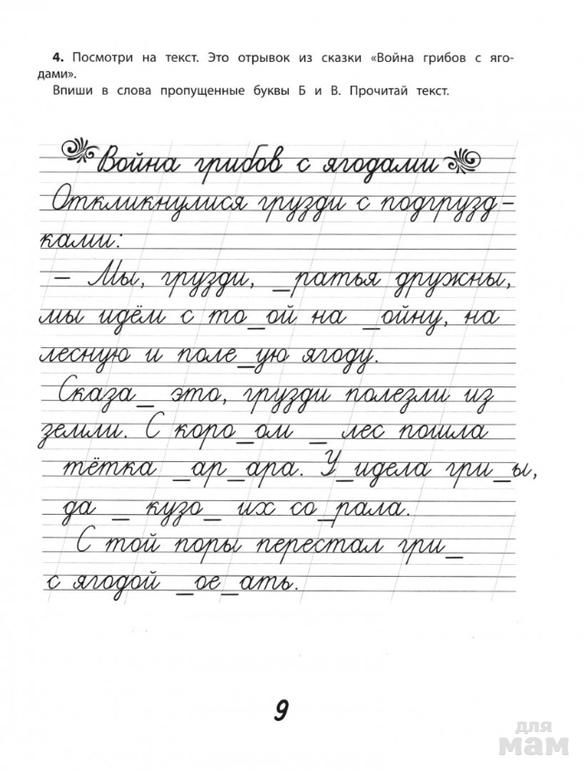 4. Посмотри на текст. Это отрывок из сказки «Война грибов с яго-
дами».
Впиши в слова пропущенные буквы Б и В. Прочитай текст.
Война грибов с ягодами
Откликнулися грузди с подгрузд-
ками:
– Мы, грузди, _ратья дружны,
мы идём с то_ой на _ойну, на
лесную и поле_ую ягоду.
Сказа_ это, грузди полезли из
земли. С коро_ом _ лес пошла
тётка _ар_ара. У_идела гри_ы,
да _ кузо_ их со_рала.
С той поры перестал гри_
с ягодой _ое_ать.
9
для
мам